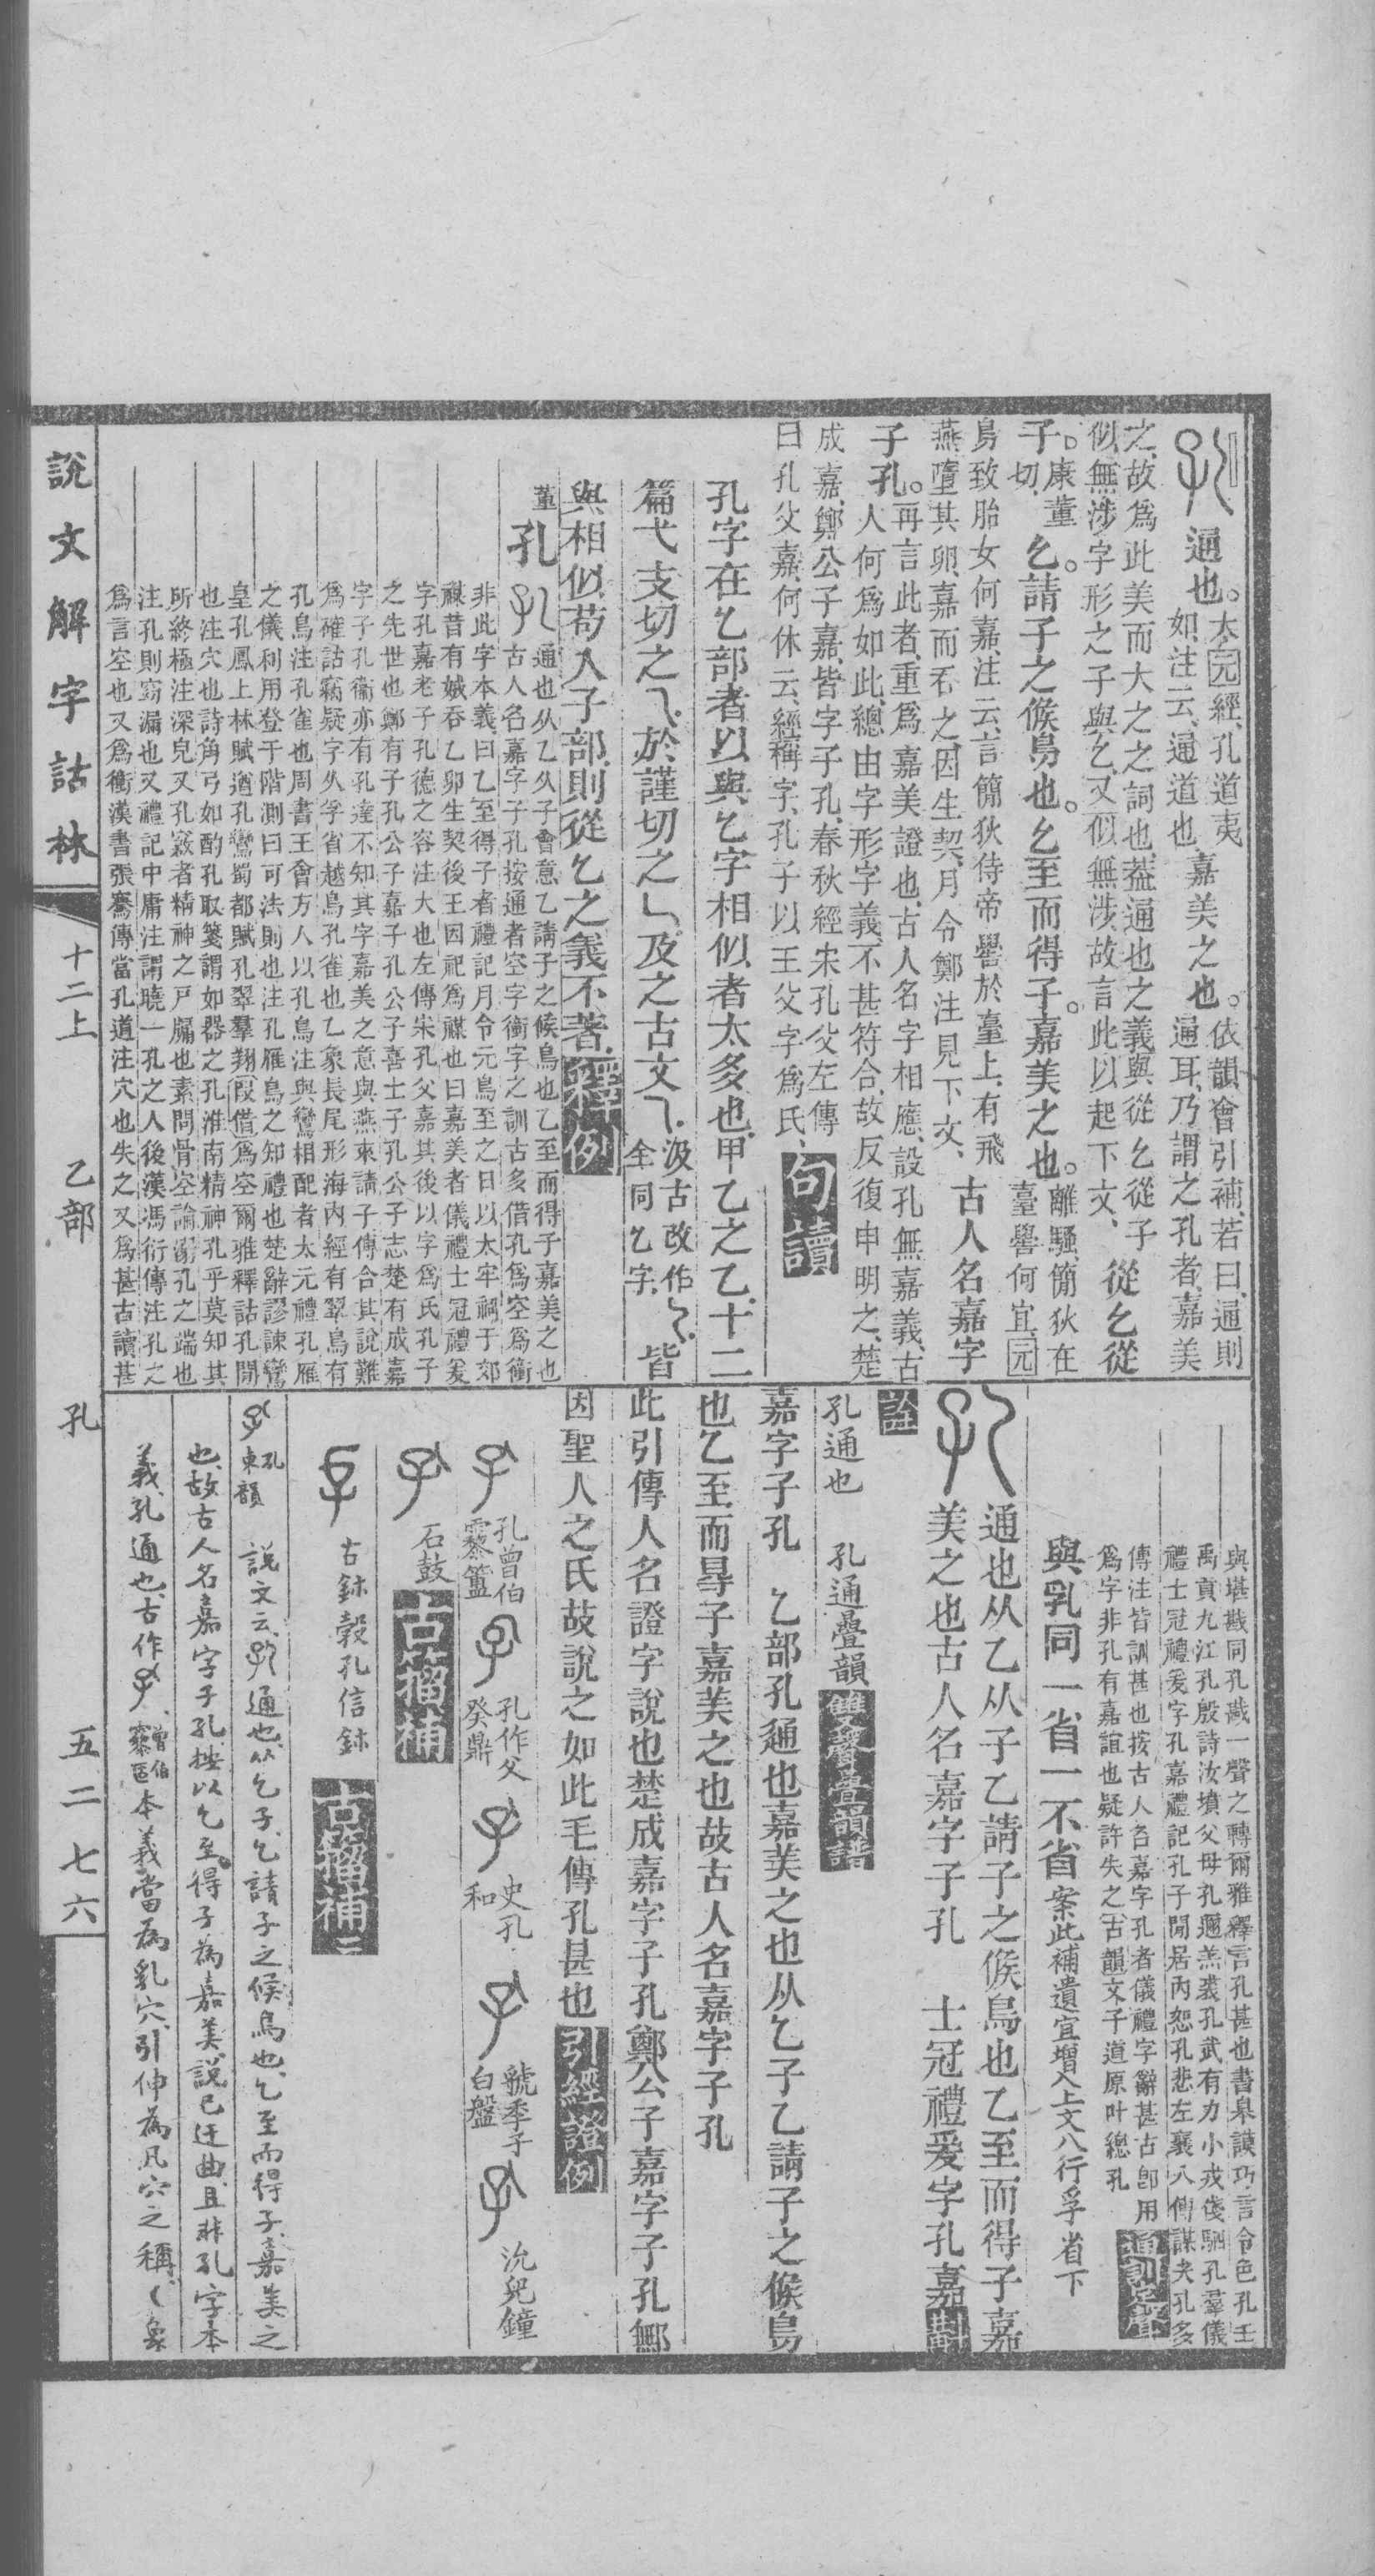 通也。太元經、孔道夷
如、注云、通道也、
嘉美之也。依韻會引補、若曰、通則
通耳、乃謂之孔者、嘉美
之、故爲此美而大之之詞也、葢通也之義與從乞從子
似無涉、字形之子與乞、又似無涉、故言此以起下文、
從乞從
子。康董
切、
乞。請子之候鳥也。乞至而得子。嘉美之也。離騷、簡狄在
臺嚳何宜、元
鳥致胎女何嘉、注云、言簡狄侍帝嚳於臺上、有飛
燕墮其卵、嘉而吞之、因生契、月令鄭注見下文、
古人名嘉字
子孔。再言此者、重爲嘉美證也、古人名字相應、設孔無嘉義、古
人何爲如此、總由字形字義不甚符合、故反復申明之、楚
成嘉、鄭公子嘉、皆字子孔、春秋經宋孔父、左傳
曰孔父嘉、何休云、經稱字、孔子以王父字爲氏、
句讀
孔字在乞部者以與乞字相似者太多也甲乙之乙十二
篇弋支切之乁於謹切之乚及之古文乁、汲古改作乀、
全同乞字、
皆
與相似茍入子部則從乞之義不著、釋例
董
孔
通也从乙从子會意乙請子之候鳥也乙至而得子嘉美之也
古人名嘉字子孔按通者空字衝字之訓古多借孔爲空爲衝
非此字本義曰乙至得子者禮記月令元鳥至之日以太牢祠于郊
禖昔有娀吞乙卵生契後王因祀爲禖也曰嘉美者儀禮士冠禮爰
字孔嘉老子孔德之容注大也左傳宋孔父嘉其後以字爲氏孔子
之先世也鄭有子孔公子嘉子孔公子喜士子孔公子志楚有成嘉
字子孔衞亦有孔達不知其字嘉美之意與燕來請子傳合其說難
爲確詁竊疑字从孚省越鳥孔雀也乙象長尾形海内經有翠鳥有
孔鳥注孔雀也周書王會方人以孔鳥注與鸞相配者太元禮孔雁
之儀利用登于階測曰可法則也注孔雁鳥之知禮也楚辭謬諫鸞
皇孔鳳上林賦遒孔鸞蜀都賦孔翠羣翔叚借爲空爾雅釋詁孔閒
也注穴也詩角弓如酌孔取箋謂如器之孔淮南精神孔乎莫知其
所終極注深皃又孔竅者精神之戸牖也素問骨空論溺孔之端也
注孔則窈漏也又禮記中庸注謂曉一孔之人後漢馮衍傳注孔之
爲言空也又爲衝漢書張騫傳當孔道注穴也失之又爲甚古讀甚
與堪戡同孔戡一聲之轉爾雅釋言孔甚也書皋謨巧言令色孔壬
禹貢九江孔殷詩汝墳父母孔邇羔裘孔武有力小戎俴駟孔羣儀
禮士冠禮爰字孔嘉禮記孔子閒居内恕孔悲左襄八傳謀夫孔多
傳注皆訓甚也按古人名嘉字孔者儀禮字辭甚古卽用
爲字非孔有嘉誼也疑許失之古韻文子道原叶總孔
通訓定聲
與乳同一省一不省案此補遺宜增入上文八行孚省下
通也从乙从子乙請子之候鳥也乙至而得子嘉
美之也古人名嘉字子孔　士冠禮爰字孔嘉斠
詮
孔通也　孔通疊韻雙聲疊韻譜
嘉字子孔　乞部孔通也嘉美之也从乞子乙請子之候鳥
也乞至而㝵子嘉美之也故古人名嘉字子孔
此引傳人名證字說也楚成嘉字子孔鄭公子嘉字子孔鄦
因聖人之氏故說之如此毛傳孔甚也引經證例
孔曾伯
霥簠
孔作父
癸鼎
史孔
和
虢季子
白盤
沇兒鐘
石鼓古籀補
古鉢㝅孔信鉢古籀補補
孔
東韻
說文云通也、从乞子、乞、請子之候鳥也、乞至而得子、嘉美之
也、故古人名嘉字子孔、按以乞至得子爲嘉美、說已迂曲、且非孔字本
義、孔通也、古作、曾伯
霥𠤱
本義當爲乳穴、引伸爲凡穴之稱、乀象
說文解字詁林
十二上　乙部　孔　五二七六